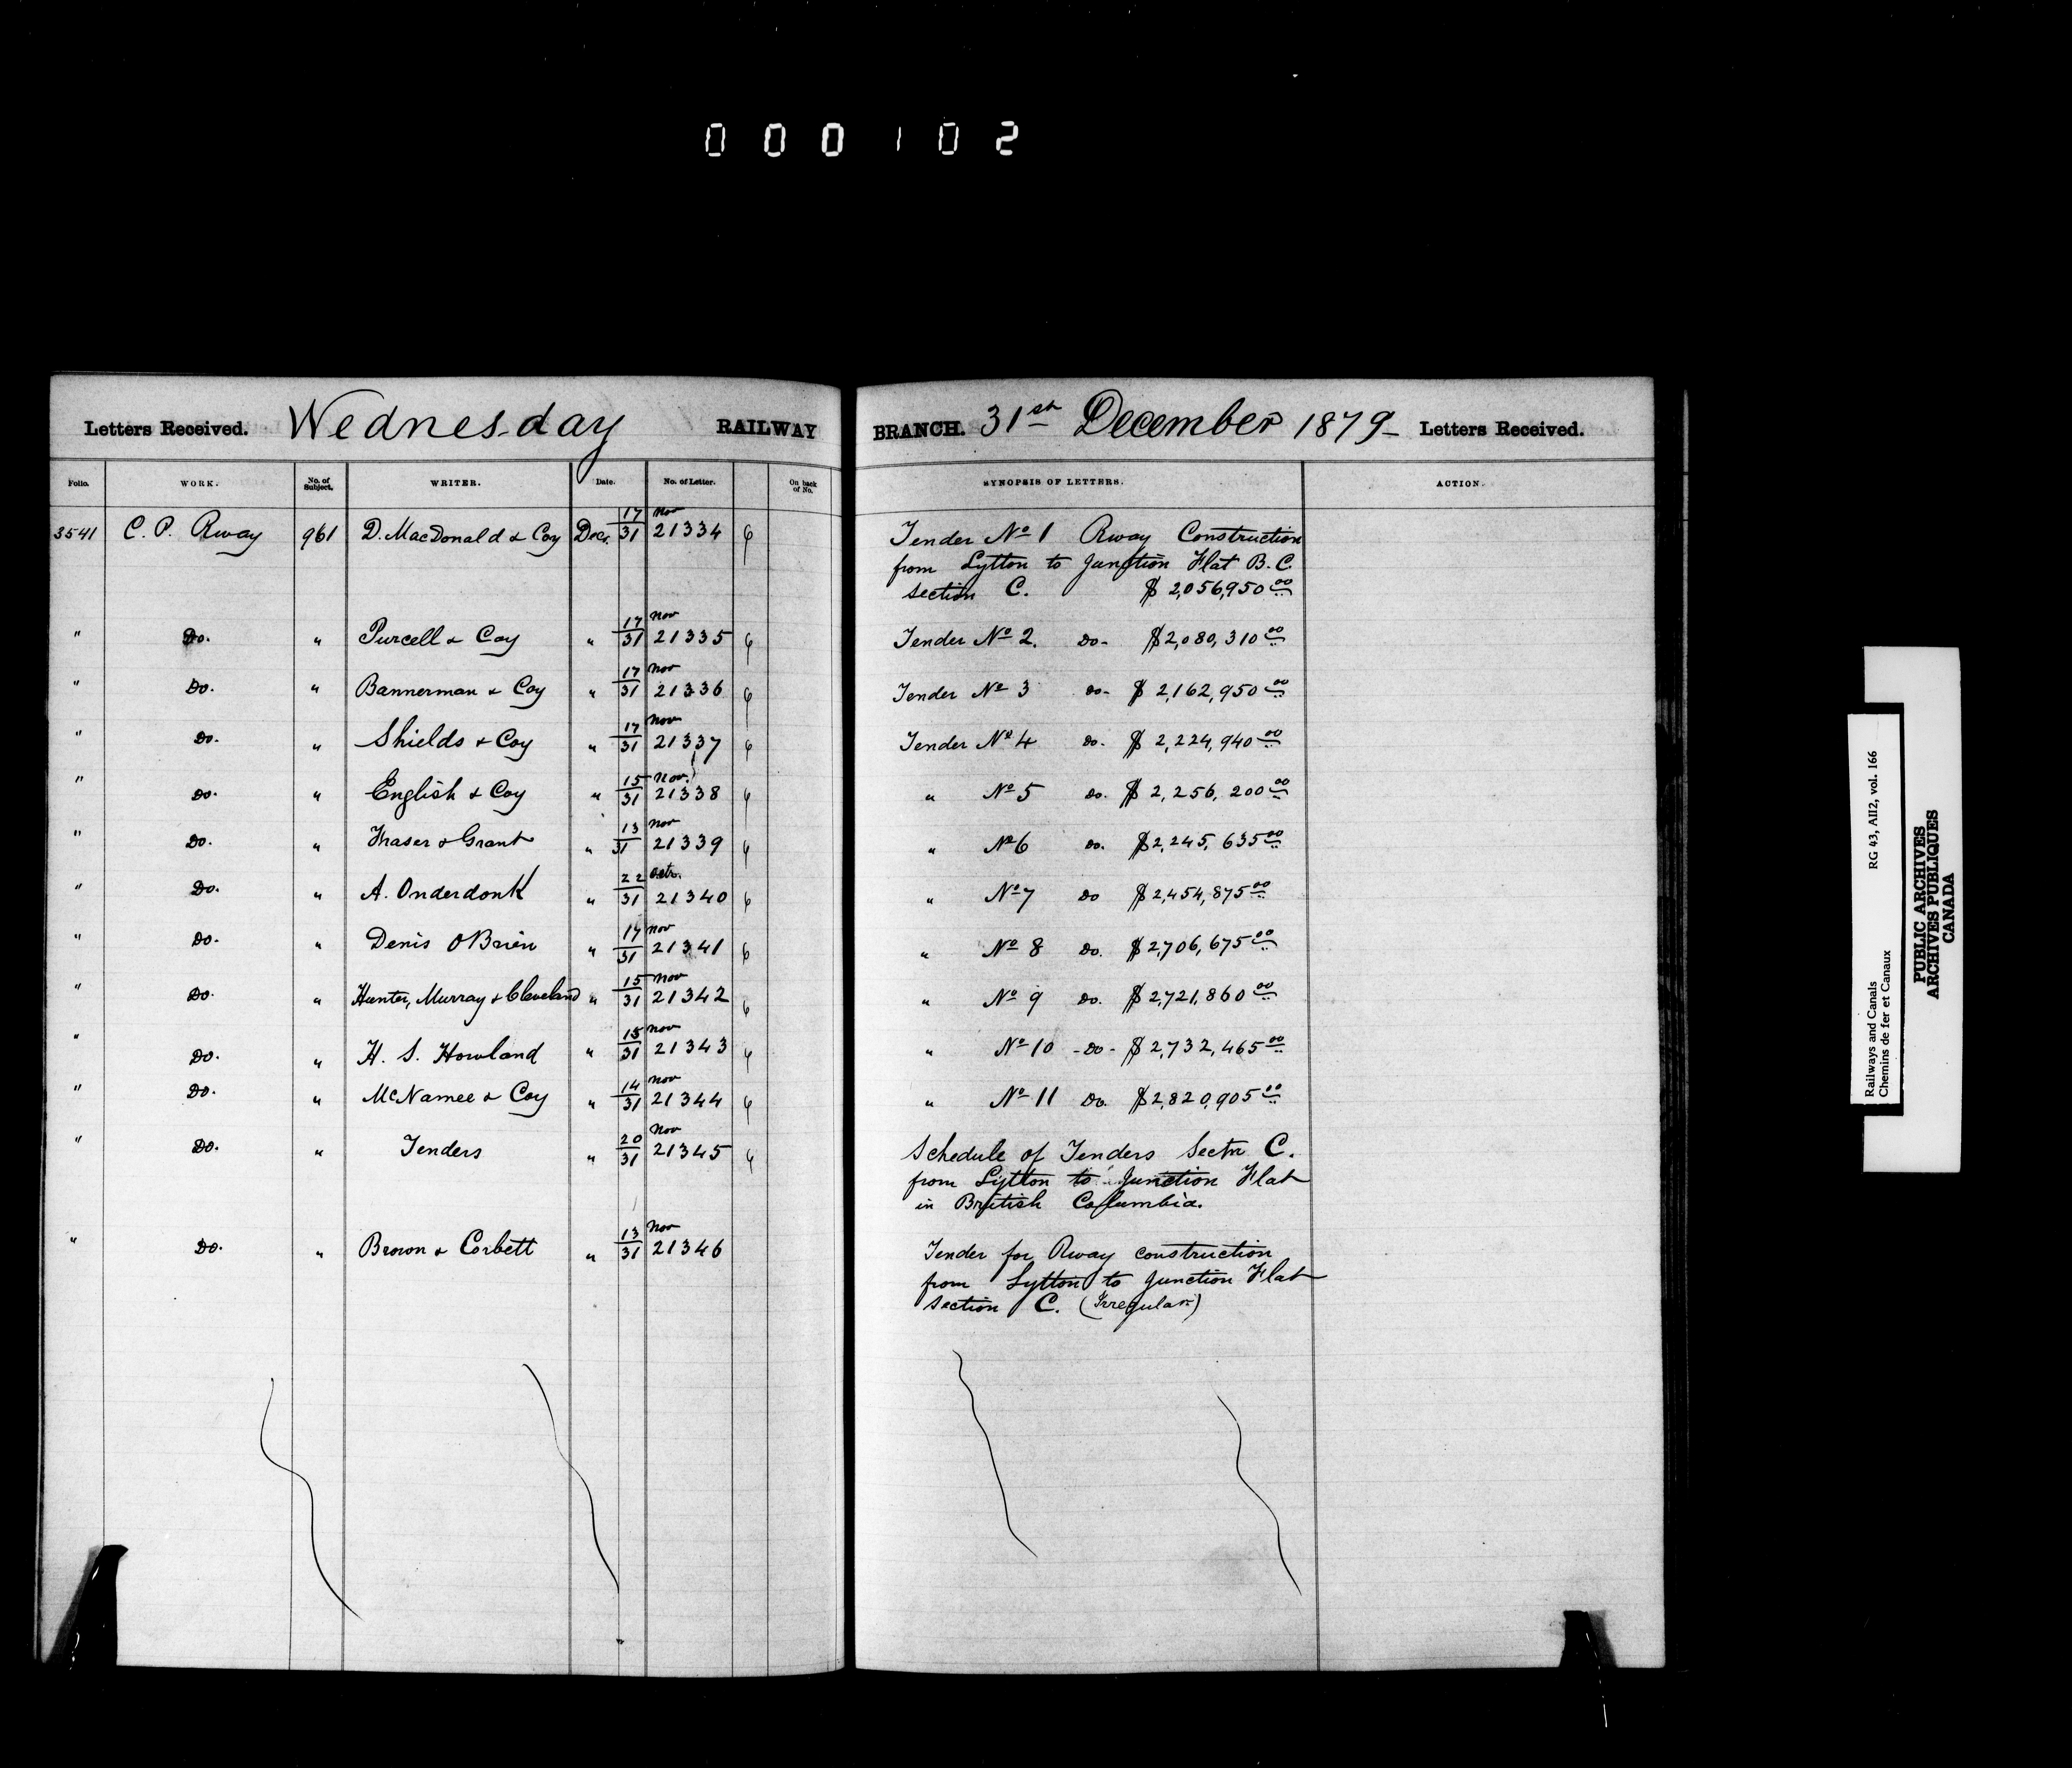 000102
Letters Received. Wednesday RAILWAY BRANCH. 31st December 1879 Letters Received.
Folio. WORK. No. of Subject. WRITER. Date. No. of Letter. On back of No. SYNOPSIS OF LETTERS. ACTION.
17 Nov
3541 C. P. Rway 961 D. MacDonald & Coy Decr. 31 21334 6 Tender No 1 Rway Construction
from Lytton to Junction Flat B.C.
section C. $ 2,056,950 00
17 Nov
" Do. " Purcell & Coy " 31 21335 6 Tender No 2. Do- $2,080,310 00
17 Nov
" Do. " Bannerman & Coy " 31 21336 6 Tender No 3 Do- $ 2,162,950 00
17 Nov
" Do. " Shields & Coy " 31 21337 6 Tender No 4 Do. $ 2,224,940 00
15 Nov.
" Do. " English & Coy " 31 21338 6 " No 5 Do. $ 2,256,200 00
13 Nov
" Do. " Fraser & Grant " 31 21339 6 " No 6 Do. $2,245,635 00
22 Octr.
" Do. " A. Onderdonk " 31 21340 6 " No 7 Do $2,454,875 00
14 Nov
" Do. " Denis OBrien " 31 21341 6 " No 8 Do. $2,706,675 00
15 Nov
" Do. " Hunter, Murray & Cleveland " 31 21342 6 " No 9 Do. $2,721,860 00
15 Nov
" Do. " H. S. Howland " 31 21343 6 " No 10 -Do- $2,732,465 00
14 Nov
" Do. " McNamee & Coy " 31 21344 6 " No 11 Do. $2,820,905 00
20 Nov
" Do. " Tenders " 31 21345 6 Schedule of Tenders Sectn C.
from Lytton to Junction Flat
in British Columbia.
13 Nov
" Do. " Brown & Corbett " 31 21346 Tender for Rway construction
from Lytton to Junction Flat
section C. (Irregular)
Railways and Canals RG 43, AII2, vol. 166
Chemins de fer et Canaux
PUBLIC ARCHIVES
ARCHIVES PUBLIQUES
CANADA